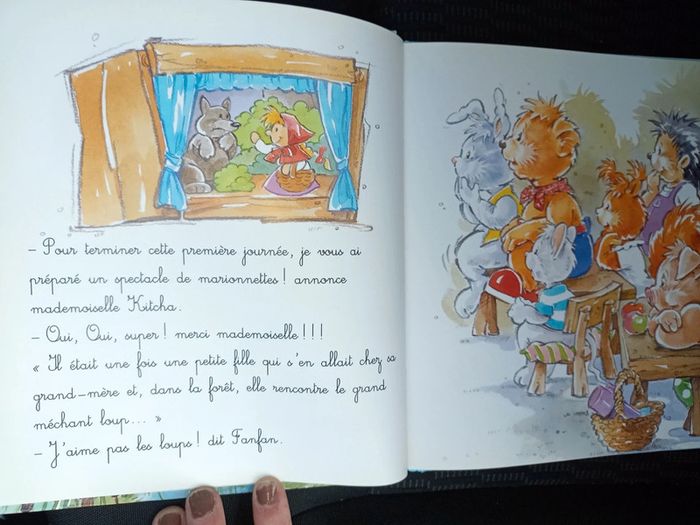 – Pour terminer cette première journée, je vous ai
préparé un spectacle de marionnettes ! annonce
mademoiselle Kitcha.
– Oui, Oui, super ! merci mademoiselle ! ! !
« Il était une fois une petite fille qui s'en allait chez sa
grand-mère et, dans la forêt, elle rencontre le grand
méchant loup... »
– J'aime pas les loups ! dit Fanfan.